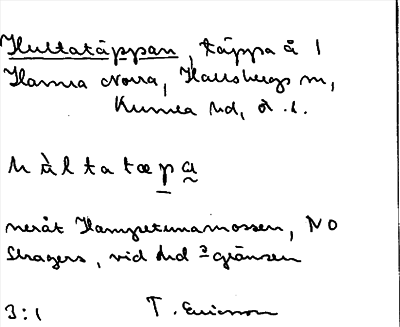 Hultatäppan, täppa å 1
Hamra Norra, Hallsbergs sn,
Kumla hd, Ö. l.
hùltatæpa
neråt Hampetunamossen, NO
Skagers, vid hd sgränsen
3:1 T. Ericsson